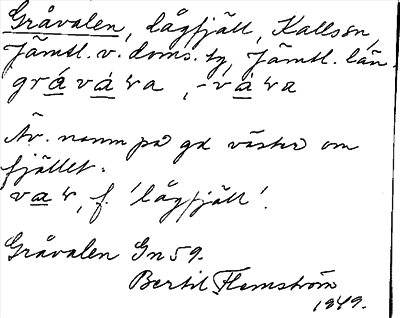 Gråvalen, lågfjäll, Kallssn,
Jämtl. v. doms. tg, Jämtl. län.
gráváɽa, -váɽa
Äv. namn på gd väster om
fjället.
vaɽ, f. 'lågfjäll'.
Gråvalen Gn 59.
Bertil Flemström
1949.